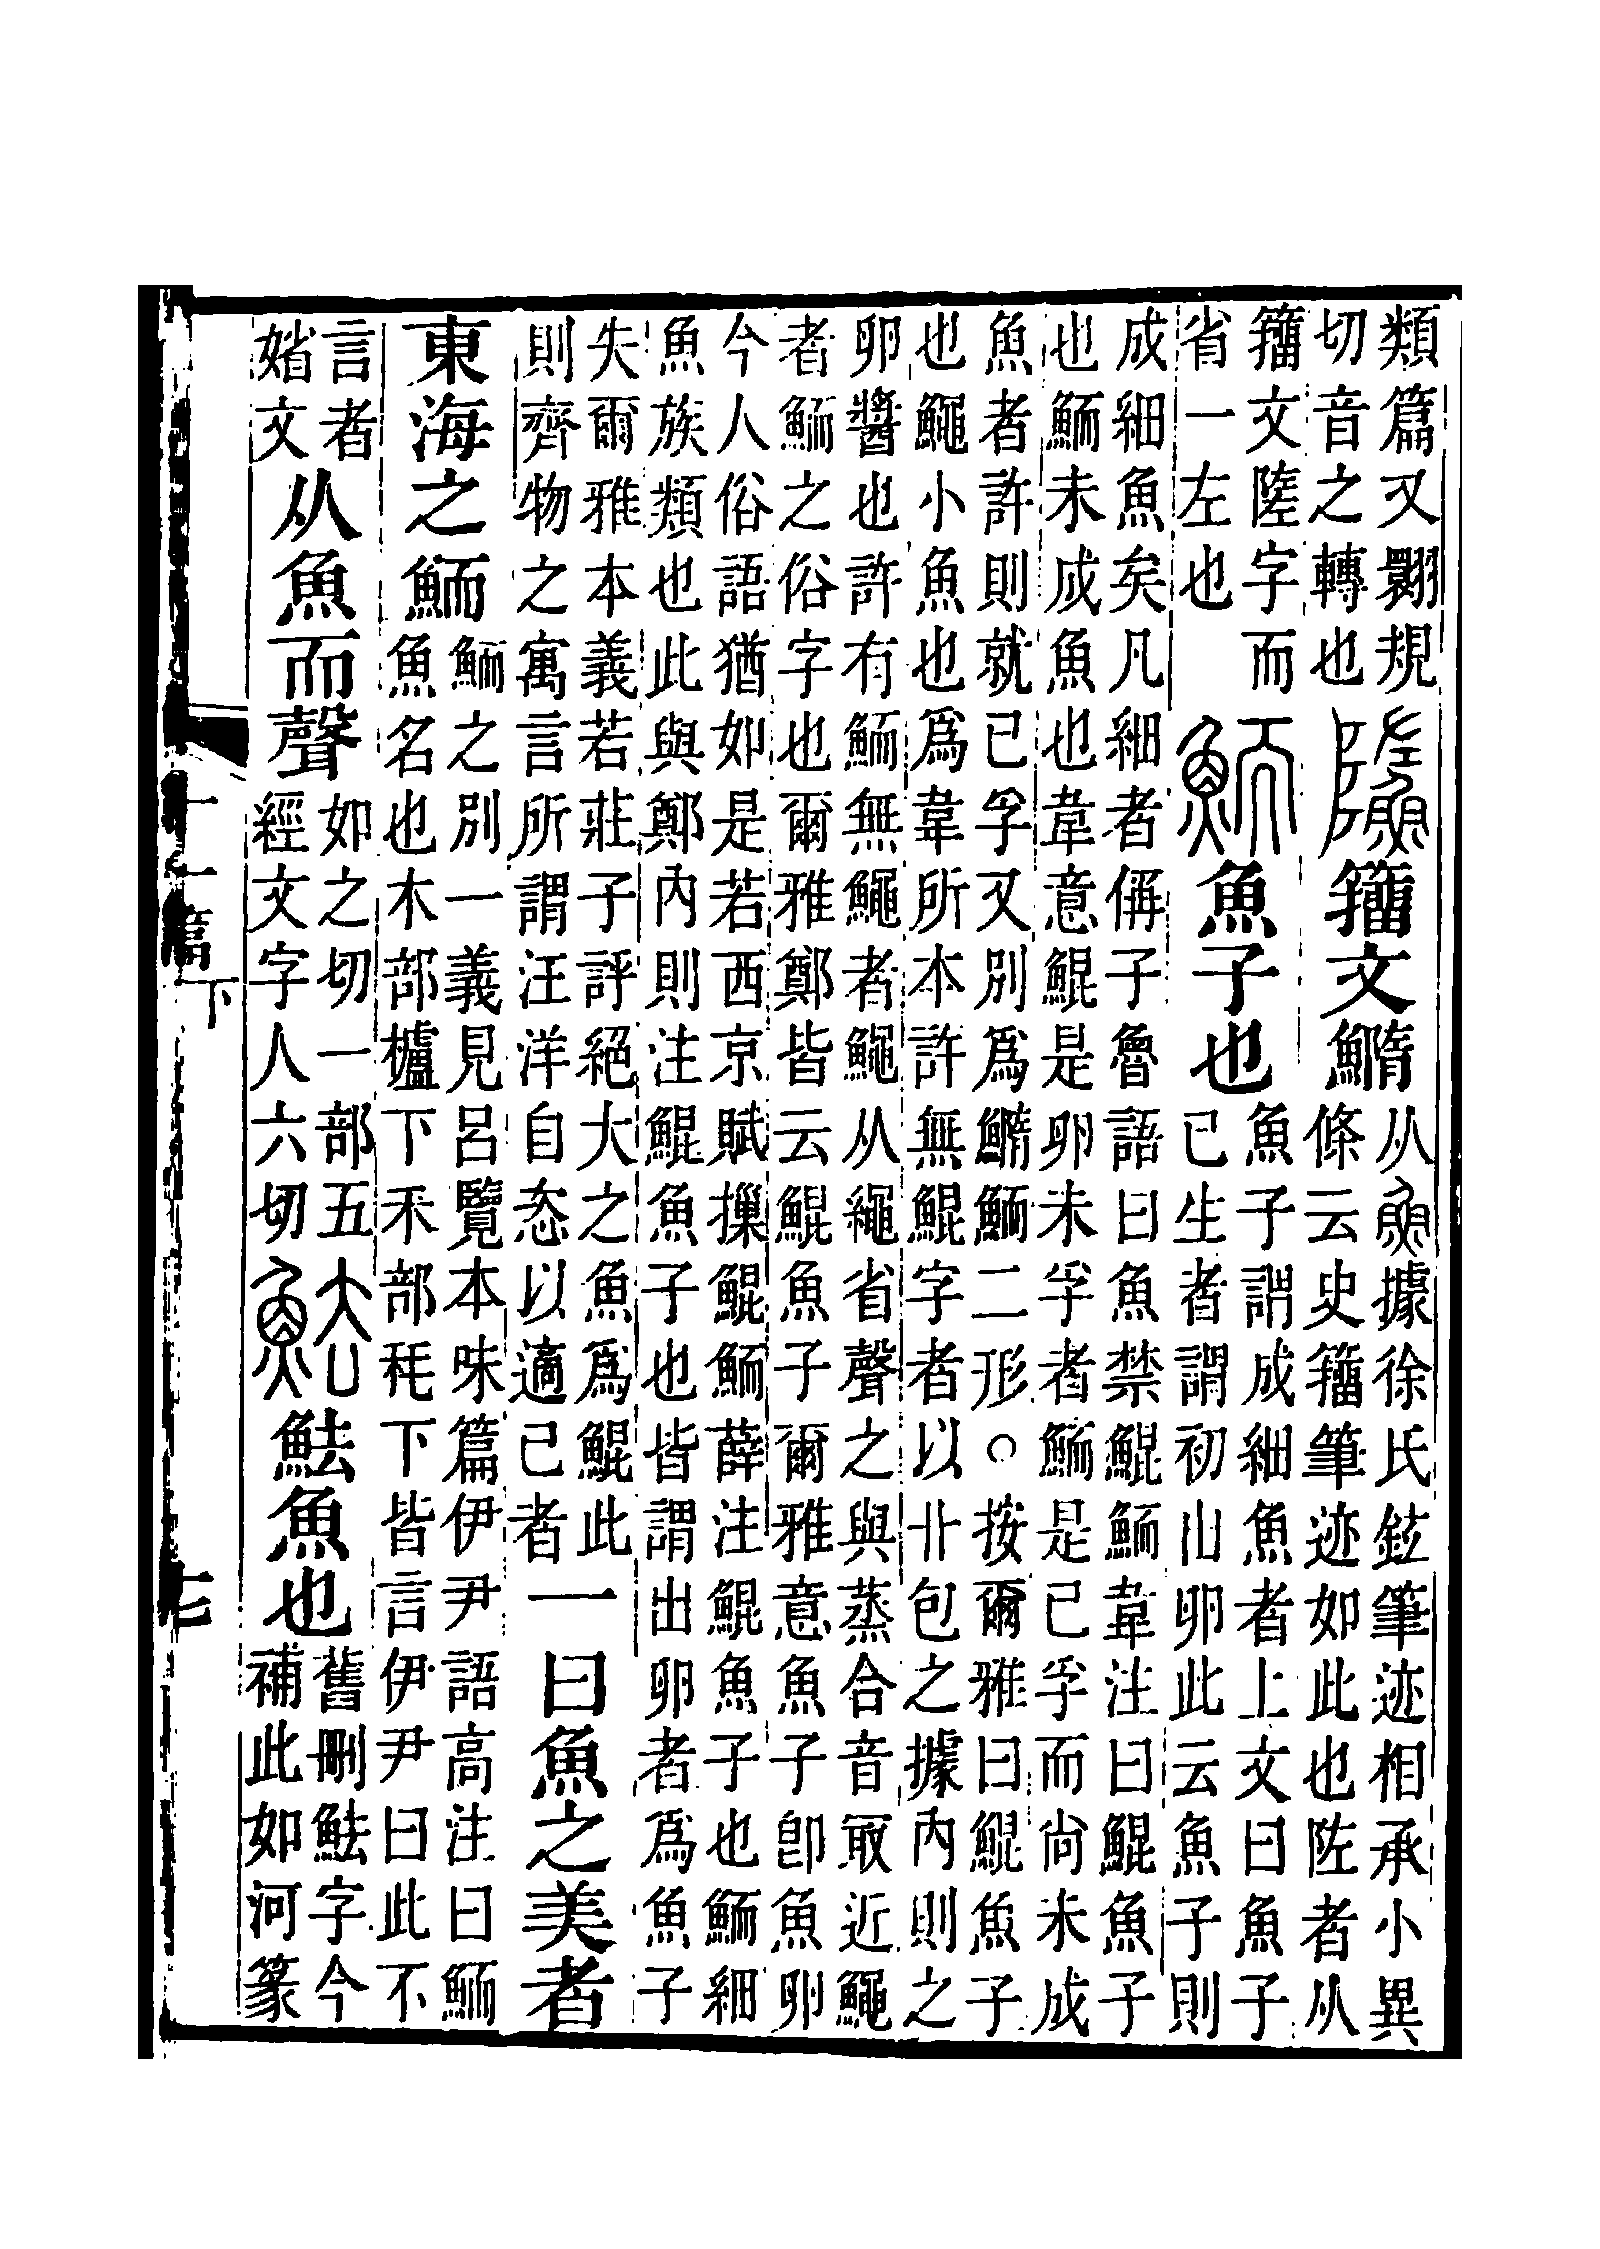 類篇又翾規
切音之轉也
𨽥籒文鰖
从𩵋據徐氏鉉筆迹相承小異
條云史籒筆迹如此也陸者从
籒文陸字而
省一左也
鮞魚子也
魚子謂成細魚者上文曰魚子
已生者謂初出卵此云魚子則
成細魚矣凡細者偁子魯語曰魚禁鯤鮞韋注曰鯤魚子
也鮞未成魚也韋意鯤是卵未孚者鮞是已孚而尚未成
魚者許則就已孚又別爲鰖鮞二形○按爾雅曰鯤魚子
也鱦小魚也爲韋所本許無鯤字者以丱包之據內則之
卵醬也許有鮞無鱦者鱦从繩省聲之與蒸合音冣近鱦
者鮞之俗字也爾雅鄭皆云鯤魚子爾雅意魚子卽魚卵
今人俗語猶如是若西京賦摷鯤鮞薛注鯤魚子也鮞細
魚族類也此與鄭內則注鯤魚子也皆謂出卵者爲魚子
失爾雅本義若莊子評絕大之魚爲鯤此
則齊物之寓言所謂汪洋自恣以適己者
一曰魚之美者
東海之鮞
鮞之別一義見呂覽本味篇伊尹語高注曰鮞
魚名也木部櫨下禾部秏下皆言伊尹曰此不
言者
媘文
从魚而聲
如之切一部五
經文字人六切
魼魼魚也
舊刪魼字今
補此如河篆
十一篇下
七